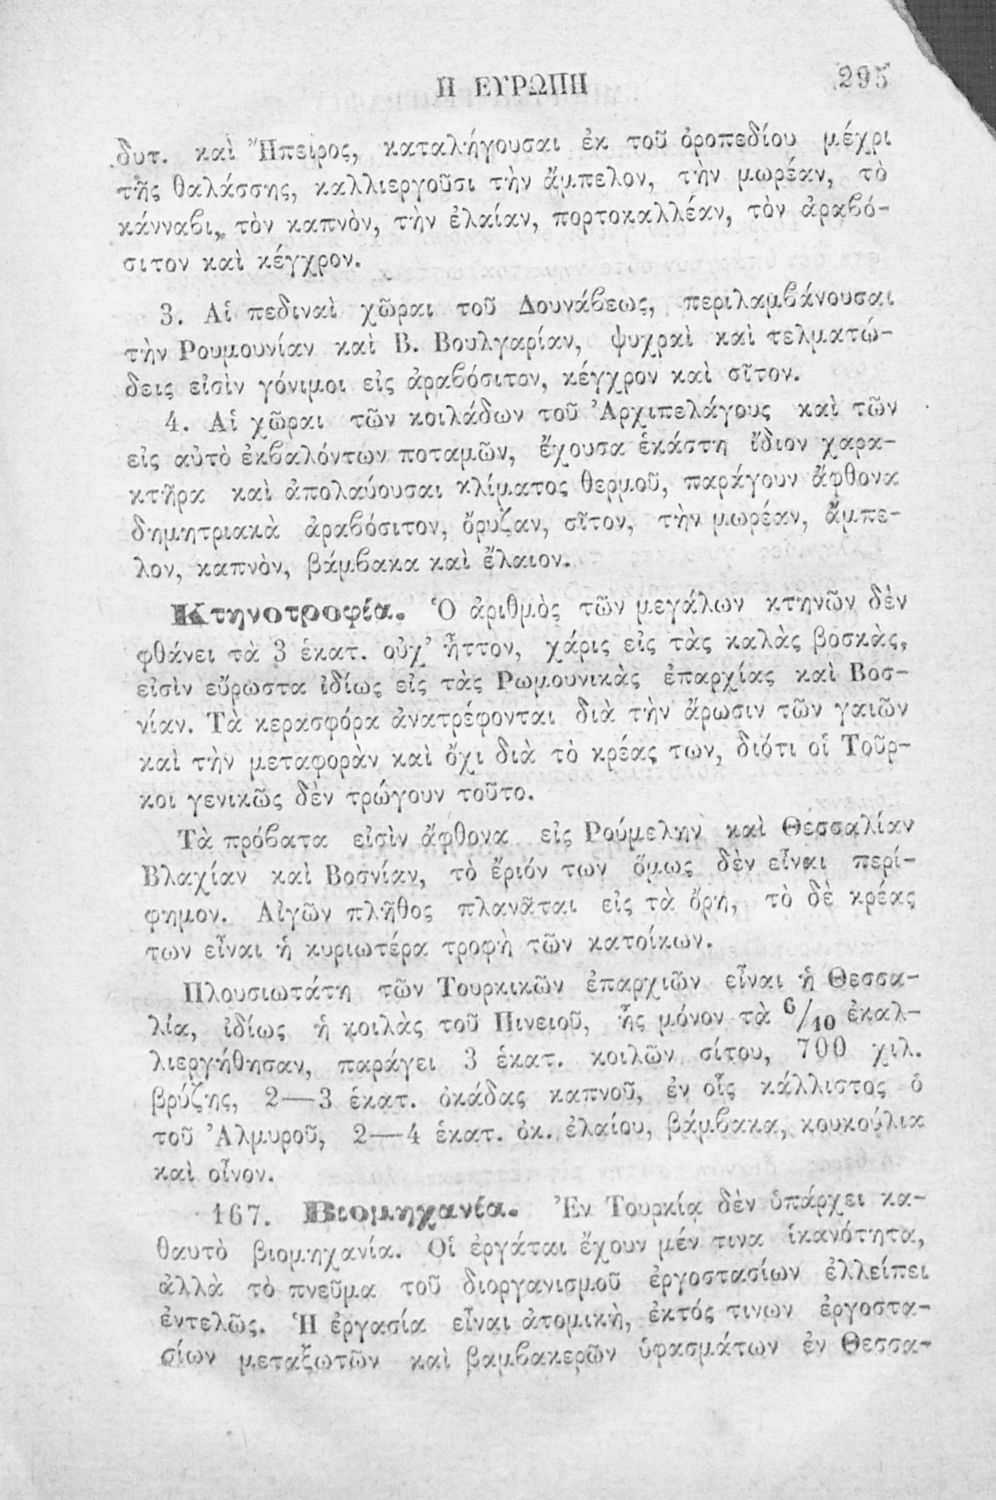 Η ΕΥΡΩΠΗ 295
δυτ. καὶ Ἤπειρος, καταλήγουσαι ἐκ τοῦ ὀροπεδίου μέχρι
τῆς θαλάσσης, καλλιεργοῦσι τὴν ἄμπελον, τὴν μωρέαν, τὸ
κάνναβι, τὸν καπνὸν, τὴν ἐλαίαν, πορτοκαλλέαν, τὸν ἀραβό-
σιτον καὶ κέγχρον.
3. Αἱ πεδιναὶ χῶραι τοῦ Δουνάβεως, περιλαμβάνουσαι
τὴν Ρουμουνίαν καὶ Β. Βουλγαρίαν, ψυχραὶ καὶ τελματώ-
δεις εἰσὶν γόνιμοι εἰς ἀραβόσιτον, κέγχρον καὶ σῖτον.
4. Αἱ χῶραι τῶν κοιλάδων τοῦ Ἀρχιπελάγους καὶ τῶν
εἰς αὐτὸ ἐκβαλόντων ποταμῶν, ἔχουσα ἑκάστη ἴδιον χαρα-
κτῆρα καὶ ἀπολαύουσαι κλίματος θερμοῦ, παράγουν ἄφθονα
δημητριακὰ ἀραβόσιτον, ὄρυζαν, σῖτον, τὴν μωρέαν, ἄμπε-
λον, καπνὸν, βάμβακα καὶ ἔλαιον.
Κτηνοτροφία. Ὁ ἀριθμὸς τῶν μεγάλων κτηνῶν δὲν
φθάνει τὰ 3 ἑκατ. οὐχ’ ἧττον, χάρις εἰς τὰς καλὰς βοσκὰς,
εἰσὶν εὔρωστα ἰδίως εἰς τὰς Ρωμουνικὰς ἐπαρχίας καὶ Βοσ-
νίαν. Τὰ κερασφόρα ἀνατρέφονται διὰ τὴν ἄρωσιν τῶν γαιῶν
καὶ τὴν μεταφορὰν καὶ ὄχι διὰ τὸ κρέας των, διότι οἱ Τοῦρ-
κοι γενικῶς δὲν τρώγουν τοῦτο.
Τὰ πρόβατα εἰσὶν ἄφθονα εἰς Ρούμελην καὶ Θεσσαλίαν
Βλαχίαν καὶ Βοσνίαν, τὸ ἔριόν των ὅμως δὲν εἶναι περί-
φημον. Αἰγῶν πλῆθος πλανᾶται εἰς τὰ ὄρη, τὸ δὲ κρέας
των εἶναι ἡ κυριωτέρα τροφὴ τῶν κατοίκων.
Πλουσιωτάτη τῶν Τουρκικῶν ἐπαρχιῶν εἶναι ἡ Θεσσα-
λία, ἰδίως ἡ κοιλὰς τοῦ Πινειοῦ, ἧς μόνον τὰ 6/10 ἐκαλ-
λιεργήθησαν, παράγει 3 ἑκατ. κοιλῶν σίτου, 700 χιλ.
βρύζης, 2—3 ἑκατ. ὀκάδας καπνοῦ, ἐν οἷς κάλλιστος ὁ
τοῦ Ἀλμυροῦ, 2—4 ἑκατ. ὀκ. ἐλαίου, βάμβακα, κουκούλια
καὶ οἶνον.
167. Βιομηχανία. Ἐν Τουρκίᾳ δὲν ὑπάρχει κα-
θαυτὸ βιομηχανία. Οἱ ἐργάται ἔχουν μέν τινα ἱκανότητα,
ἀλλὰ τὸ πνεῦμα τοῦ διοργανισμοῦ ἐργοστασίων ἐλλείπει
ἐντελῶς. Ἡ ἐργασία εἶναι ἀτομικὴ, ἐκτός τινων ἐργοστα-
σίων μεταξωτῶν καὶ βαμβακερῶν ὑφασμάτων ἐν Θεσσα-